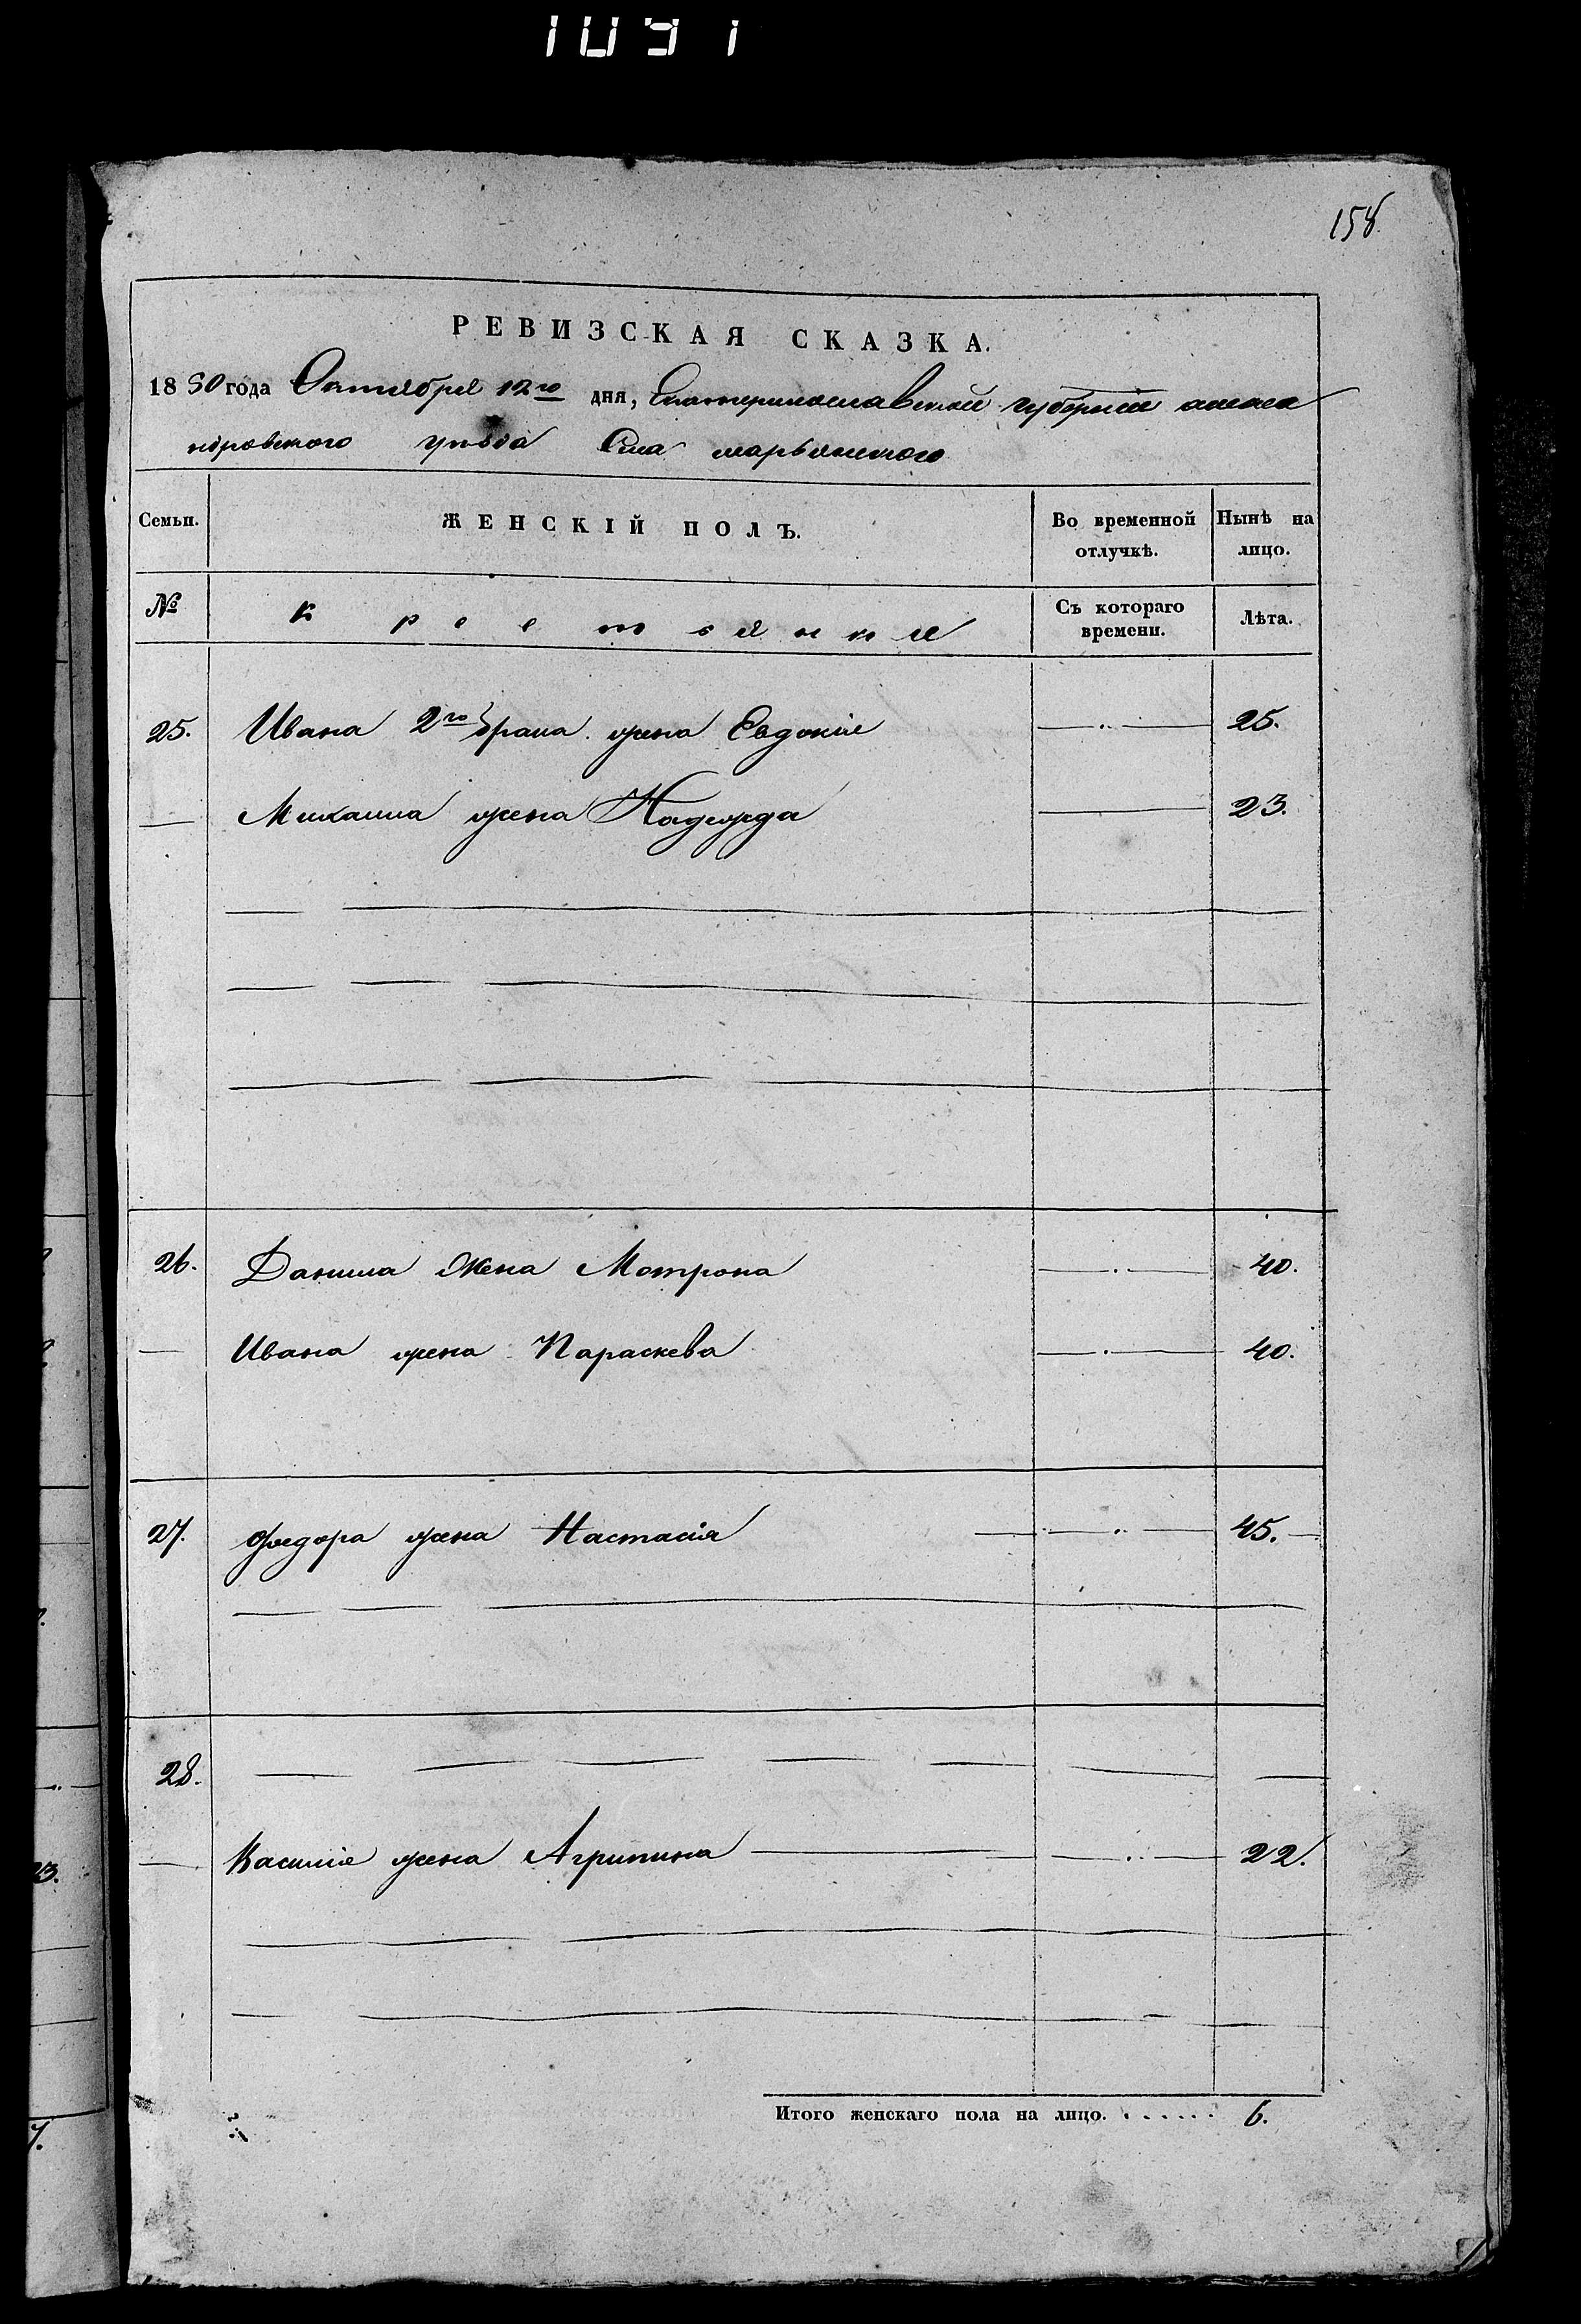 1091
158.
РЕВИЗСКАЯ СКАЗКА.
1850 года Октября 12го дня, Екатеринославской губернiи алекса
ндровского уѣзда Села марьянского
Семьи. ЖЕНСКIЙ ПОЛЪ. Во временной отлучкѣ. Нынѣ на лицо.
№ крестьянки Съ котораго времени. Лѣта.
25. Ивана 2го брака жена Евдокiя 25.
Михаила жена Надежда 23.
26. Данила Жена Мотрона 40.
Ивана жена Параскева 40.
27. Федора жена Настасiя 45.
28.
Василiя жена Агрипина 22.
Итого женскаго пола на лицо. 6.
23.
7.